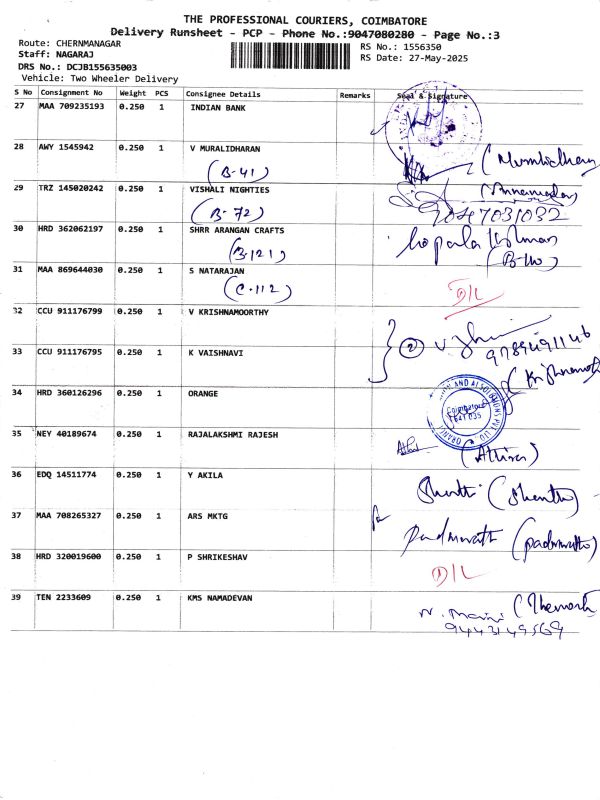 THE PROFESSIONAL COURIERS, COIMBATORE
Delivery Runsheet - PCP - Phone No.:9047080280 - Page No.:3
Route: CHERNMANAGAR
RS No.: 1556350
Staff: NAGARAJ
RS Date: 27-May-2025
DRS No.: DCJB155635003
Vehicle: Two Wheeler Delivery
S No Consignment No Weight PCS Consignee Details Remarks Seal & Signature
27 MAA 709235193 0.250 1 INDIAN BANK
28 AWY 1545942 0.250 1 V MURALIDHARAN
(B-41)
29 TRZ 145020242 0.250 1 VISHALI NIGHTIES
(B-72) 9047031032
30 HRD 362062197 0.250 1 SHRR ARANGAN CRAFTS
(B-121)
31 MAA 869644030 0.250 1 S NATARAJAN
(C-112) D/L
32 CCU 911176799 0.250 1 V KRISHNAMOORTHY
33 CCU 911176795 0.250 1 K VAISHNAVI
34 HRD 360126296 0.250 1 ORANGE
Coimbatore
641 035
35 NEY 40189674 0.250 1 RAJALAKSHMI RAJESH
36 EDQ 14511774 0.250 1 Y AKILA
37 MAA 708265327 0.250 1 ARS MKTG
38 HRD 320019600 0.250 1 P SHRIKESHAV
D/L
39 TEN 2233609 0.250 1 KMS NAMADEVAN
9443149569